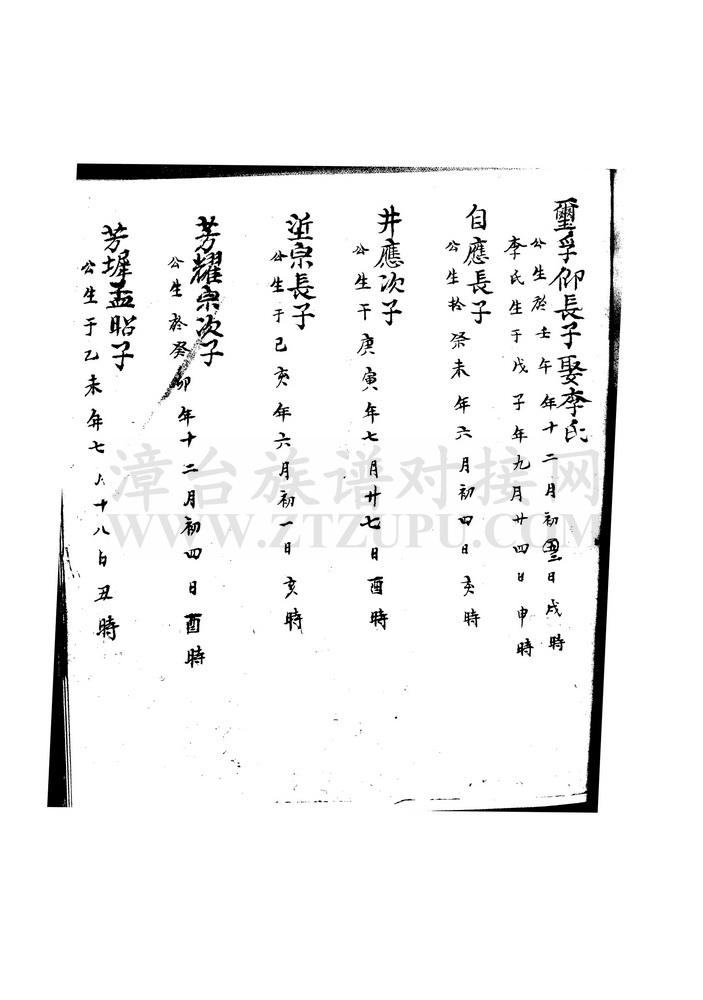 璽孚仰長子娶李氏
公生於壬午年十二月初 日戌時
李氏生于戊子年九月廿四日申時
自應長子
公生於癸未年六月初四日亥時
井應次子
公生于庚寅年七月廿七日酉時
宗長子
公生于己亥年六月初一日亥時
芳耀宗次子
公生於癸卯年十二月初四日酉時
芳墀孟昭子
公生于乙未年七月十八日丑時
漳台族谱对接网
WWW.ZTZUPU.COM